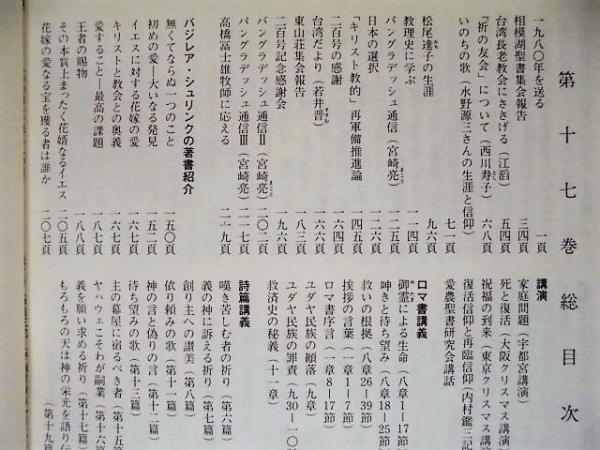 第十七巻総目次
一九八〇年を送る 一頁
相模湖聖書集会報告 三四頁
台湾長老教会にささげる（江滔） 五四頁
「祈の友会」について（西川寿子） 六八頁
いのちの歌（水野源三さんの生涯と信仰） 七一頁
松尾達子の生涯 九六頁
教理史に学ぶ 一一四頁
バングラデッシュ通信（宮崎亮） 一二五頁
日本の選択 一二六頁
「キリスト教的」再軍備推進論 一四五頁
二百号の感謝 一六四頁
台湾だより（若井晋） 一六六頁
東山荘集会報告 一八三頁
二百号記念感謝会 一九六頁
バングラデッシュ通信Ⅱ（宮崎亮） 二〇二頁
バングラデッシュ通信Ⅲ（宮崎亮） 二一七頁
高橋富士雄牧師に応える 二一九頁
バジレア・シュリンクの著書紹介
無くてならぬ一つのこと 一五〇頁
初めの愛―大いなる発見 一五二頁
イエスに対する花嫁の愛 一六七頁
キリストと教会との奥義 一六七頁
愛すること―最高の課題 一八七頁
王者の賜物 一八八頁
その本質上まったく花婿なるイエス 二〇五頁
花嫁の愛なる宝を獲る者は誰か 二〇七頁
講演
家庭問題（宇都宮講演）
死と復活（大阪クリスマス講演
祝福の到来（東京クリスマス講演
復活信仰と再臨信仰（内村鑑三記
愛農聖書研究会講話
ロマ書講義
御霊による生命（八章1―17節
呻きと待ち望み（八章18―25節
救いの根拠（八章26―39節）
挨拶の言葉（一章1―7節）
ロマ書序言（一章8―17節）
ユダヤ民族の顛落（九章）
ユダヤ民族の罪責（九30―一〇
救済史の秘義（十一章）
詩篇講義
嘆き苦しむ者の祈り（第六篇）
義の神に訴える祈り（第七篇）
創り主への讃美（第八篇）
依り頼みの歌（第十一篇）
神の言と偽りの言（第十二篇
待ち望みの歌（第十三篇）
主の幕屋に宿るべき者（第十五篇
ヤハウェこそわが嗣業（第十六篇
義を願い求める祈り（第十七篇）
もろもろの天は神の栄光を語り伝
（第十九篇